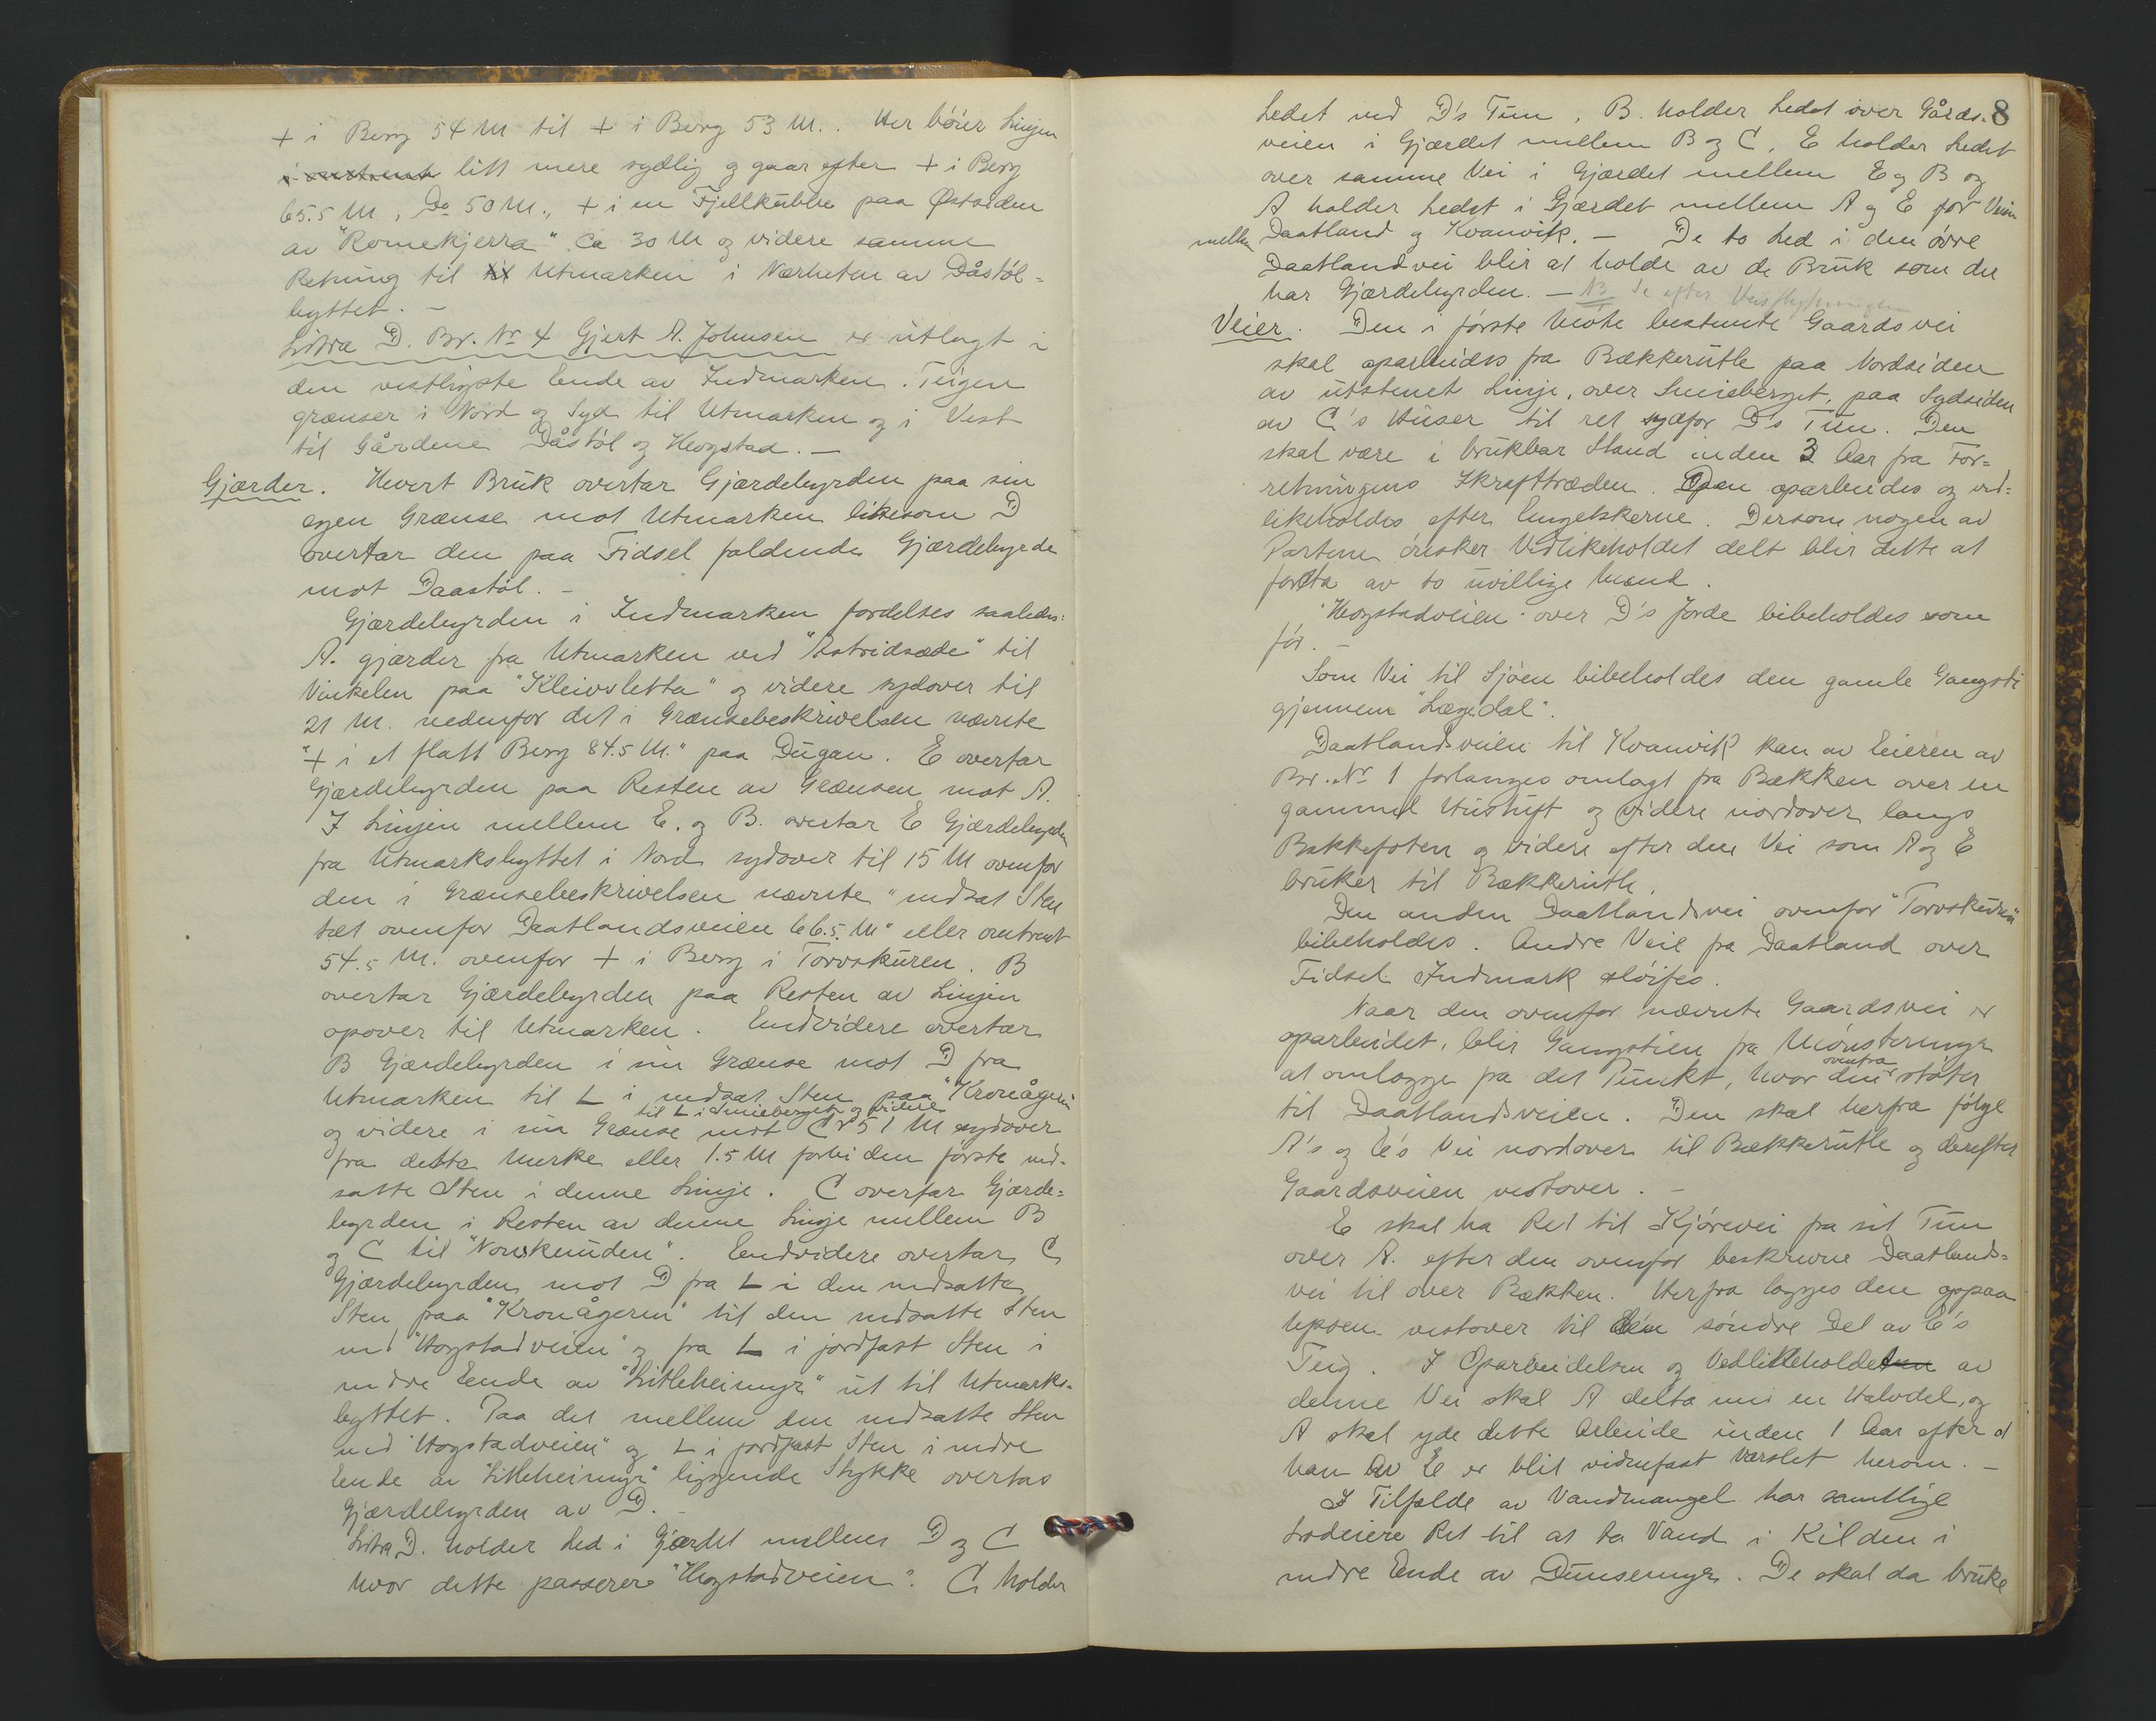 + i Berg 54 M til + i Berg 53 M.. Her böier Linjen
litt mere sydlig og gaar efter + i Berg
65.5 M, Do 50 M., + i en Fjellkubbe paa Østsiden
av "Romekjerra" ca 30 M og videre samme
Retning til Utmarken i Nærheten av Dåstöl-
byttet. -
Litra D. Br. Nr 4 Gjert A. Johnsen er utlagt i
den vestligste Ende av Indmarken. Teigen
grænser i Nord og Syd til Utmarken og i Vest
til Gårdene Dåstöl og Heogstad. -
Gjærder. Hvert Bruk overtar Gjærdebyrden paa sin
egen Grænse mot Utmarken likesom D
overtar den paa Fidsel faldende Gjærdebyrde
mot Daastöl. -
Gjærdebyrden i Indmarken fordeltes saaledes:
A. gjærder fra Utmarken ved "Astridsæde" til
Vinkelen paa "Kleivsletta" og videre sydover til
21 M. nedenfor det i Grænsebeskrivelsen nævnte
"+ i et flatt Berg 84.5 M." paa Dugan. E overtar
Gjærdebyrden paa Resten av Grænsen mot A.
I Linjen mellem E. og B. overtar E Gjærdebyrden
fra Utmarksbyttet i Nord sydover til 15 M ovenfor
den i Grænsebeskrivelsen nævnte "nedsat Sten
tæt ovenfor Daatlandsveien 66.5. M" eller omtrent
54.5 M. ovenfor + i Berg i Torvskuren. B
overtar Gjærdebyrden paa Resten av Linjen
opover til Utmarken. Endvidere overtar
B Gjærdebyrden i sin Grænse mot D fra
Utmarken til L i nedsat Sten paa "Kronågeren"
til L i Smieberget og videre
og videre i sin Grænse mot C 51 M sydover
fra dette Merke eller 1.5 M forbi den förste ned-
satte Sten i denne Linje. C overtar Gjærde-
byrden i Resten av denne Linje mellem B
og C til "Vonskeuuden". Endvidere overtar C
Gjærdebyrden mot D fra L i den nedsatte
Sten paa "Kronågeren" til den nedsatte Sten
ved "Hogstadveien" og fra L i jordfast Sten i
nedre Ende av "Litleheimyr" ut til Utmarks-
byttet. Paa det mellem den nedsatte Sten
ved "Hogstadveien" og L i jordfast Sten i nedre
Ende av "Litleheimyr" liggende Stykke overtas
Gjærdebyrden av D. -
Litra D. holder Led i Gjærdet mellem D og C
hvor dette passerer "Heogstadveien". C holder
8
Ledet ved D's Tun. B. holder Ledet over Gårds-
veien i Gjærdet mellem B og C. E holder Ledet
over samme Vei i Gjærdet mellem E og B og
A holder Ledet i Gjærdet mellem A og E for Veien
mellem Daatland og Kvanvik. - De to Led i den övre
Daatlandvei blir at holde av de Bruk som der
har Gjærdebyrden. - NB Se efter
Veier. Den i förste Möte bestemte Gaardsvei
skal oparbeides fra Bækkerutle paa Nordsiden
av utstenet Linje, over Smieberget, paa Sydsiden
av C's Huser til ret syd for D's Tun. Den
skal være i brukbar Stand inden 3 Aar fra For-
retningens Ikrafttræden. Den oparbeides og ved-
likeholdes efter Engetskerne. Dersom nogen av
Partene önsker Vedlikeholdet delt blir dette at
foreta av to uvillige Mænd.
"Heogstadveien" over D's Jorde bibeholdes som
för. -
Som Vei til Sjöen bibeholdes den gamle Gangsti
gjennem "Lægedal".
Daatlandsveien til Kvanvik kan av Eieren av
Br. Nr 1 forlanges omlagt fra Bækken over en
gammel Hustuft og videre nordover langs
Bakkefoten og videre efter den Vei som A og E
bruker til Bækkerutle.
Den anden Daatlandsvei ovenfor "Torvskuren"
bibeholdes. Andre Veie fra Daatland over
Fidsel Indmark slöifes.
Naar den ovenfor nævnte Gaardsvei er
oparbeidet, blir Gangstien fra Mönstermyr
ovenfra
at omlægge fra det Punkt, hvor den stöter
til Daatlandsveien. Den skal herfra fölge
A's og E's Vei nordover til Bækkerutle og derefter
Gaardsveien vestover. -
E skal ha Ret til Kjörevei fra sit Tun
over A. efter den ovenfor beskrevne Daatlands-
vei til over Bækken. Herfra lægges den oppaa
Upsen vestover til den söndre Del av E's
Teig. I Oparbeidelsen og Vedlikeholdet av
denne Vei skal A delta med en Halvdel, og
A skal yde dette Arbeide inden 1 Aar efter at
han av E er blit vidnefast Varslet herom. -
I Tilfælde av Vandmangel har samtlige
Lodeiere Ret til at ta Vand i Kilden i
nedre Ende av Dunsemyr. De skal da bruke